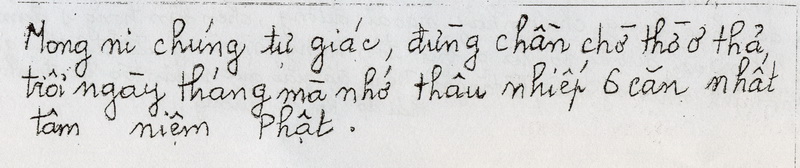 Mong ni chúng tự giác, đừng chần chờ thờ ơ thả
trôi ngày tháng mà nhớ thâu nhiếp 6 căn nhất
tâm niệm Phật.